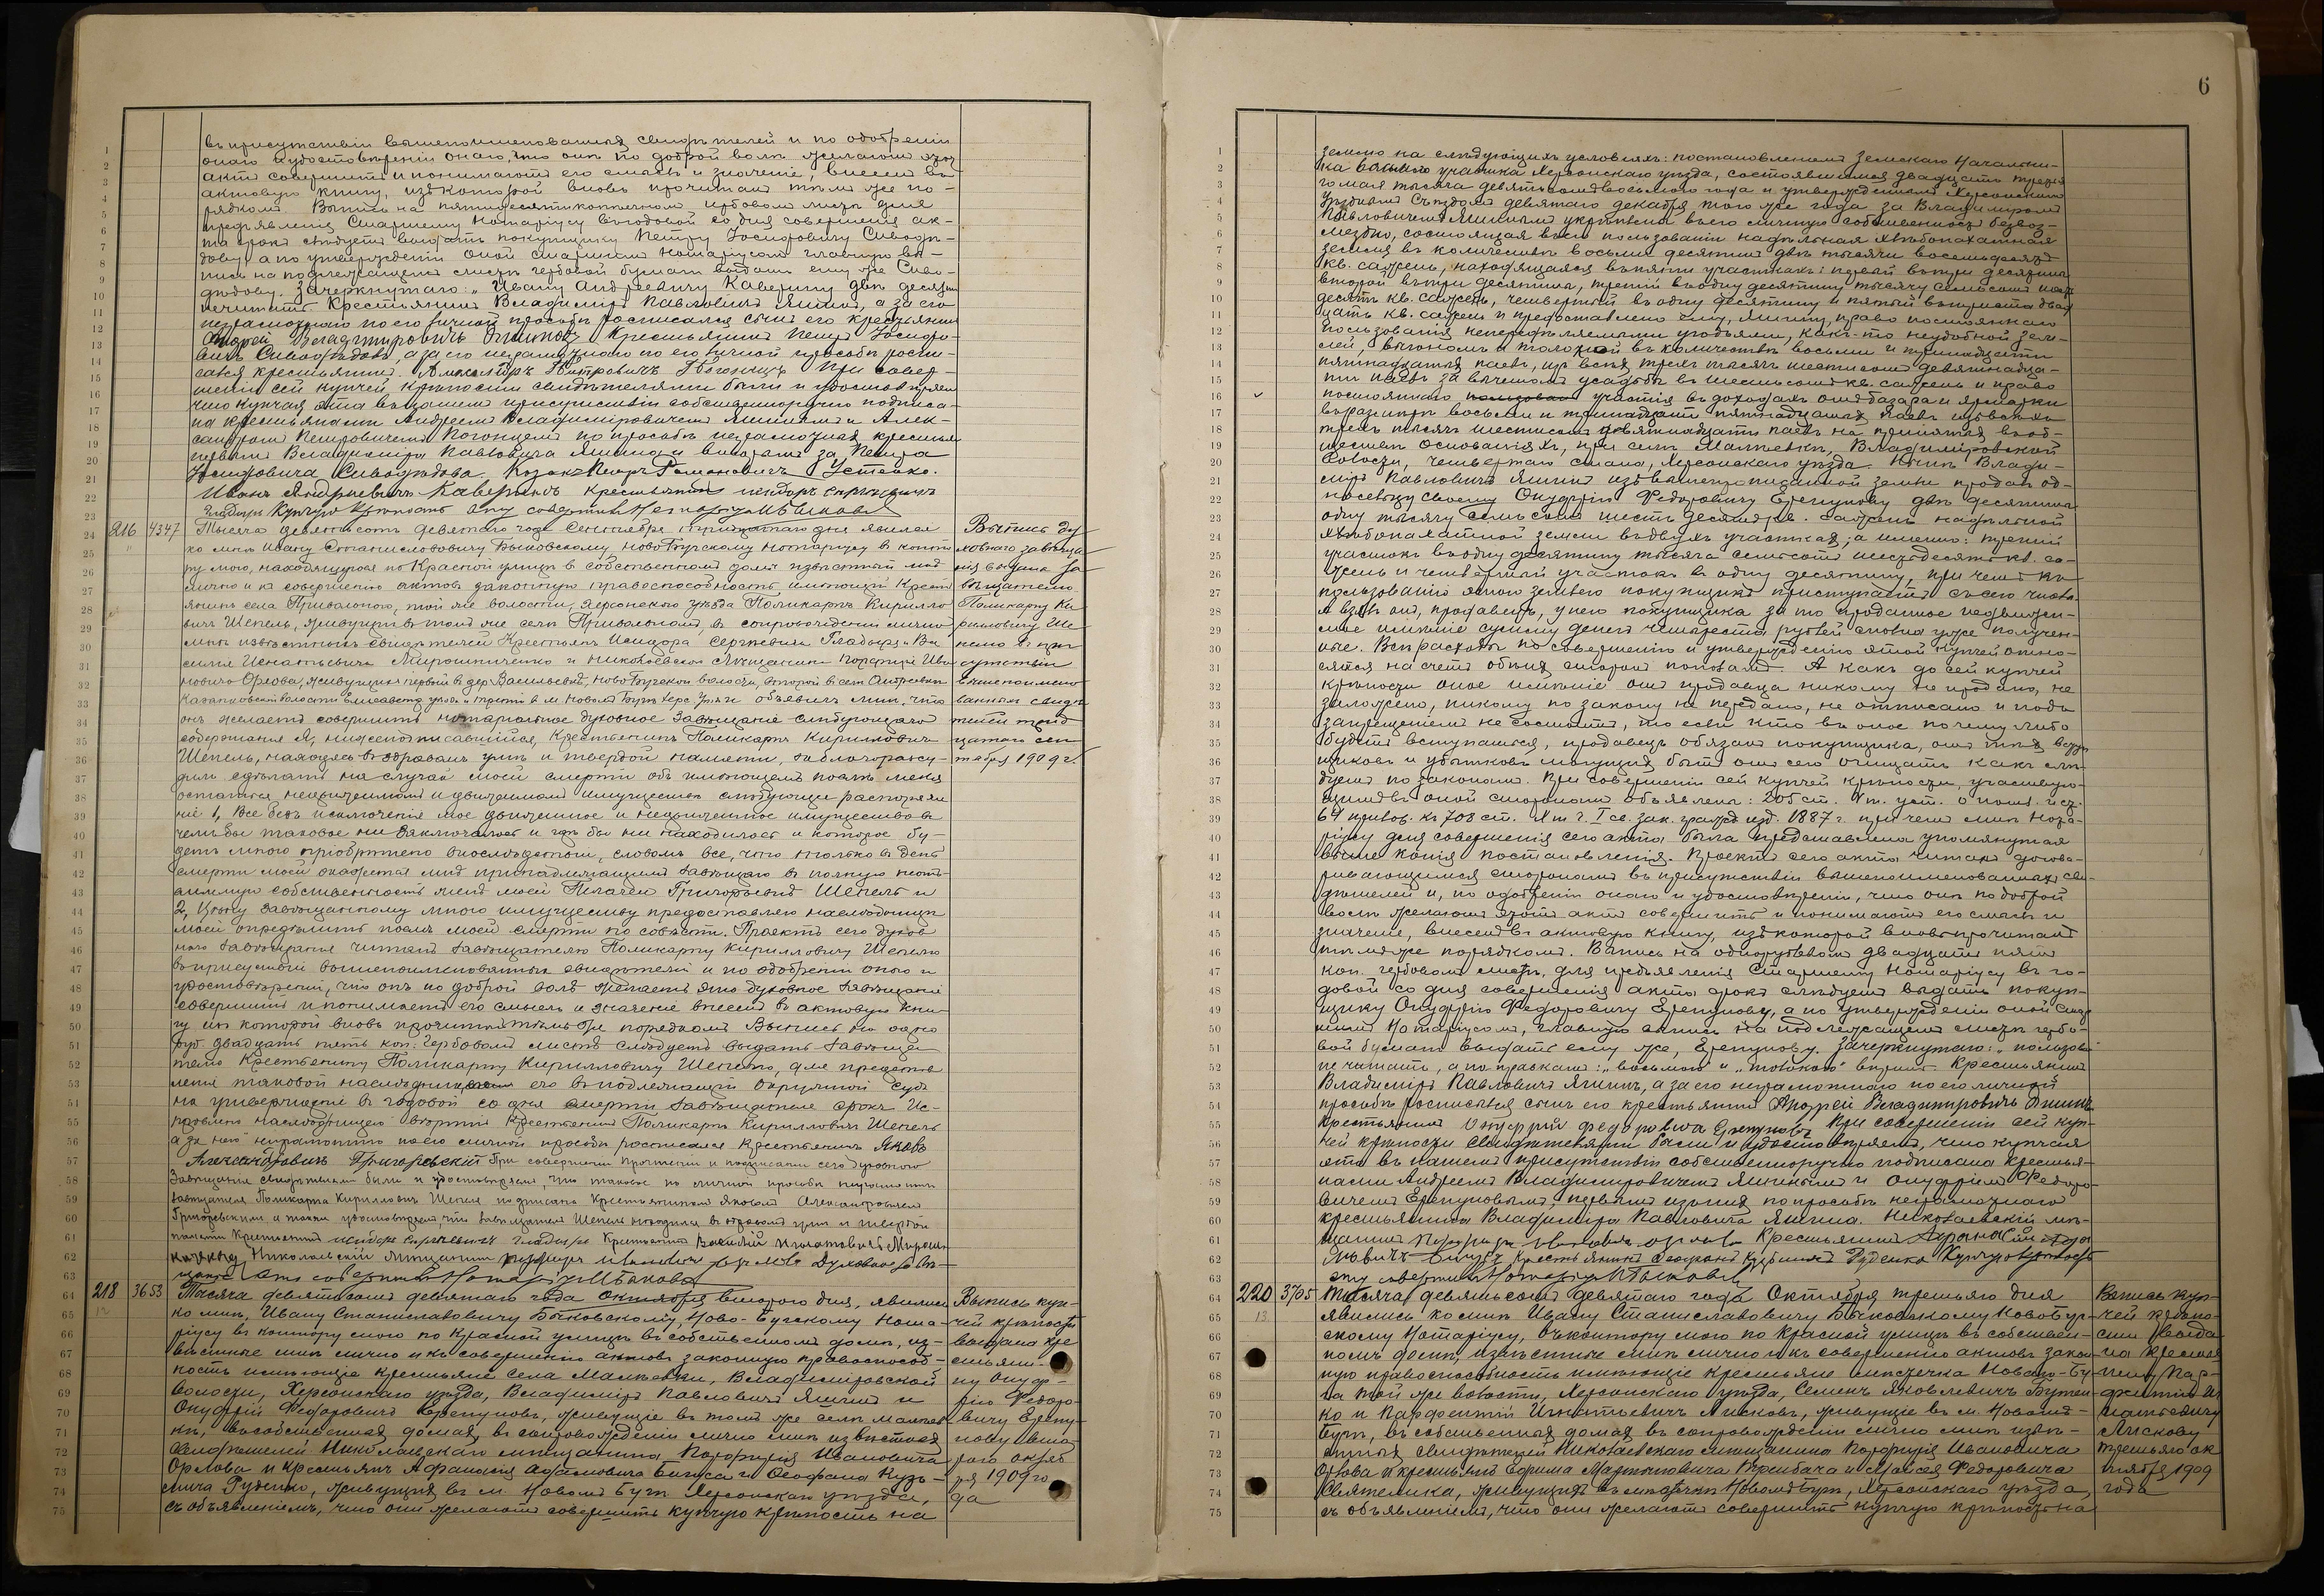 въ присутствіи вышепоименованныхъ свидѣтелей и по одобреніи
онаго и удостовѣреніи онаго, что они по доброй волѣ желаютъ этотъ
актъ совершить и понимаютъ его смыслъ и значеніе, внесенъ въ
актовую книгу, изъ которой вновь прочитанъ тѣмъ же по-
рядкомъ. Выпись на пятидесятикопеечномъ гербовомъ листѣ для
предъявленія Старшему Нотаріусу въ годовой со дня совершенія ак-
та срокъ слѣдуетъ выдать покупщику Петру Іосифовичу
а по утвержденіи оной старшимъ Нотаріусомъ главную вы-
пись на подлежащемъ листѣ гербовой бумаги выдать ему же
Зачеркнутаго: „Ивану Андреевичу Каверину двѣ десятины
нечитать. Крестьянинъ Владиміръ Павловичъ Яшинъ, а за его
неграмотнаго по его личной просьбѣ росписался сынъ его крестьянинъ
Андрей Владимировичъ Крестьянинъ Петръ Іосифо-
вичъ а за его неграмотнаго по его личной просьбѣ роспи-
сался крестьянинъ Александръ Петровичъ При совер-
шеніи сей купчей крѣпости свидѣтелями были и удостовѣряемъ
что купчая эта въ нашемъ присутствіи собственноручно подписа-
на крестьянами Андреемъ Владиміровичемъ и Алек-
сандромъ Петровичемъ по просьбѣ неграмотныхъ крестьянъ
первымъ Владиміра Павловича и вторымъ за Петра
Іосифовича Козакъ Петръ Романовичъ Устенко.
Иванъ Андреевичъ Каверинъ крестьянинъ
Купчую Крѣпость эту совершилъ Нотаріусъ И Быковскій
216 4347 Тысяча девятьсотъ девятаго года Сентября тридцатаго дня явился Выпись ду-
ко мнѣ Ивану Станиславовичу Быковскому, Ново-Бугскому Нотаріусу въ конто- ховнаго завѣща-
ру мою, находящуюся по Красной улицѣ въ собственномъ домѣ извѣстный мнѣ нія выдана за-
лично и къ совершенію актовъ законную правоспособность имѣющій Кресть- вѣщателю
янинъ села Привольнаго, той же волости, Херсонскаго уѣзда Поликарпъ Кирилло- Поликарпу Ки-
вичъ Шепель, живущій въ томъ же селѣ Привольномъ, въ сопровожденіи лично рилловичу Ше-
мнѣ извѣстныхъ свидѣтелей Крестьянъ Исидора Сергѣевича и Ва- пелю въ при-
силія Игнатьевича Мирошниченко и Николаевскаго мѣщанина Порфирія Ива- сутствіи
новича Орлова, живущихъ первый въ дер. Васильевкѣ, Ново-Бугской волости, второй въ сел. вышепоимено-
волости Елисаветгр. уѣзда и третій въ м. Новомъ Бугѣ Херс. уѣзда и объявилъ мнѣ, что ванныхъ свидѣ-
онъ желаетъ совершить нотаріальное духовное завѣщаніе слѣдующаго телей трид-
содержанія Я, нижеподписавшійся, Крестьянинъ Поликарпъ Кирилловичъ цатаго сен-
Шепель, находясь въ здравомъ умѣ и твердой памяти, заблагоразсу- тября 1909 г.
дилъ сдѣлать на случай моей смерти объ имѣющемъ послѣ меня
остаться недвижимомъ и движимомъ имуществѣ слѣдующее распоряже-
ніе 1, Все безъ исключенія мое движимое и недвижимое имущество въ
чемъ бы таковое ни заключалось и гдѣ бы ни находилось и которое бу-
детъ мною пріобрѣтено впослѣдствіи, словомъ все, что только въ день
смерти моей окажется мнѣ принадлежащимъ завѣщаю въ полную неотъ-
емлемую собственность женѣ моей Пелагеѣ Григорьевнѣ Шепель и
2, завѣщанному мною имуществу предоставляю наслѣдницѣ
моей опредѣлить послѣ моей смерти по совѣсти. Проектъ сего духов-
наго завѣщанія читанъ завѣщателю Поликарпу Кирилловичу Шепелю
въ присутствіи вышепоименованныхъ свидѣтелей и по одобреніи онаго и
удостовѣреніи, что онъ по доброй волѣ желаетъ это духовное завѣщаніе
совершить и понимаетъ его смыслъ и значеніе внесенъ въ актовую кни-
гу изъ которой вновь прочитанъ тѣмъ же порядкомъ Выпись на одно
руб. двадцать пять коп. гербовомъ листѣ слѣдуетъ выдать завѣща-
телю Крестьянину Поликарпу Кирилловичу Шепелю, для представ-
ленія таковой наслѣдницею его въ подлежащій Окружный Судъ
на утвержденіе въ годовой со дня смерти завѣщателя срокъ Ис-
правлено наслѣдницею вѣрить Крестьянинъ Поликарпъ Кирилловичъ Шепель
а за него неграмотнаго по его личной просьбѣ росписался Крестьянинъ Яковъ
Александровичъ Григоревскій При совершеніи прочтеніи и подписаніи сего духовнаго
Завѣщанія свидѣтелями были и удостовѣряемъ, что таковое по личной просьбѣ неграмотнаго
завѣщателя Поликарпа Кирилловича Шепеля подписано Крестьяниномъ Яковомъ Александровичемъ
Григоревскимъ, а также удостовѣряемъ, что завѣщатель Шепель находился въ здравомъ умѣ и твердой
памяти Крестьянинъ Крестьянинъ Василій Игнатовичъ Мирош-
Николаевскій мѣщанинъ Порфирій Ивановичъ Орловъ Духовное завѣ-
щаніе это совершилъ Нотаріусъ И Быковскій
218 3653 Тысяча девятьсотъ девятаго года Октября второго дня, явились Выпись куп-
12 ко мнѣ, Ивану Станиславовичу Быковскому, Ново-Бугскому Нота- чей крѣпости
ріусу въ контору мою по Красной улицѣ въ собственномъ домѣ, из- выдана кре-
вѣстные мнѣ лично и къ совершенію актовъ законную правоспособ- стьяни-
ность имѣющіе крестьяне села Малѣевки, Владиміровской ну Онуф-
волости, Херсонскаго уѣзда, Владиміръ Павловичъ Яшинъ и рію Федоро-
Онуфрій Федоровичъ Ерепуновъ, живущіе въ томъ же селѣ Малѣев- вичу Ерепу-
кѣ, въ собственныхъ домахъ, въ сопровожденіи лично мнѣ извѣстныхъ нову вто-
свидѣтелей Николаевскаго мѣщанина Порфирія Ивановича рого октяб-
Орлова и крестьянъ Афанасія и Ѳеофана Кузь- ря 1909 го-
мича Руденко, живущихъ въ м. Новомъ Бугѣ Херсонскаго уѣзда, да
съ объявленіемъ, что они желаютъ совершить купчую крѣпость на
6
землю на слѣдующихъ условіяхъ: постановленіемъ Земскаго Начальни-
ка участка Херсонскаго уѣзда, состоявшимся двадцать третья-
го мая тысяча девятьсотъ восьмого года и утвержденнымъ Херсонскимъ
Уѣзднымъ Съѣздомъ девятаго декабря того же года за Владиміромъ
Павловичемъ Яшинымъ укрѣплена въ его личную собственность безвоз-
мездно, состоящая въ его пользованіи надѣльная хлѣбопахатная
земля въ количествѣ восьми десятинъ двѣ тысячи восемьдесятъ
кв. сажень, находящаяся въ пяти участкахъ: первый въ три десятины
второй въ три десятины, третій въ одну десятину тысячу семьсотъ шесть-
десятъ кв. сажень, четвертый въ одну десятину и пятый въ триста двад-
цать кв. сажень и предоставлено ему, Яшину, право постояннаго
пользованія непередѣляемыми угодьями, какъ-то неудобной зем-
лей, выгономъ и толокой въ количествѣ восьми и тринадцати
пятнадцатыхъ паевъ, изъ всѣхъ трехъ тысячъ шестисотъ девятнадца-
ти паевъ за вычетомъ усадьбы въ шестьсотъ кв. сажень и право
постояннаго пользован участія въ доходахъ отъ базара и ярмарки
въ размѣрѣ восьми и тринадцати пятнадцатыхъ паевъ изъ всѣхъ
трехъ тысячъ шестисотъ девятнадцати паевъ на принятыхъ въ об-
ществѣ основаніяхъ, при селѣ Малѣевкѣ, Владиміровской
волости, четвертаго стана, Херсонскаго уѣзда. Нынѣ Влади-
міръ Павловичъ Яшинъ изъ вышепрописанной земли продалъ од-
носельцу своему Онуфрію Федоровичу Ерепунову двѣ десятины
одну тысячу семьсотъ шестьдесятъ кв. сажень надѣльной
хлѣбопахатной земли въ двухъ участкахъ; а именно: третій
участокъ въ одну десятину тысяча семьсотъ шестьдесятъ кв. са-
жень и четвертый участокъ въ одну десятину, при чемъ въ
пользованіе этою землею покупщикъ приступаетъ съ сего числа
А взялъ онъ, продавецъ, у него покупщика за то проданное недвижи-
мое имѣніе сумму денегъ четыреста рублей сполна уже получен-
ные. Всѣ расходы по совершенію и утвержденію этой купчей отно-
сятся на счетъ обѣихъ сторонъ пополамъ. А какъ до сей купчей
крѣпости оное имѣніе отъ продавца никому не продано, не
заложено, никому по закону не передано, не отписано и подъ
запрещеніемъ не состоитъ, то если кто въ оное почему либо
будетъ вступаться, продавецъ обязанъ покупщика, отъ тѣхъ вступ-
щиковъ и убытковъ могущихъ быть отъ сего очищать какъ слѣ-
дуетъ по законамъ. При совершеніи сей купчей крѣпости, участвую-
щимъ въ оной сторонамъ объявлена: 205 ст. V т. уст. о пошл. и ст.
64 прилож. къ 708 ст. X т. ч. I св. зак. гражд. изд. 1887 г. при чемъ мнѣ Нота-
ріусу для совершенія сего акта была представлена упомянутая
выше копія постановленія. Проектъ сего акта читанъ догова-
ривающимся сторонамъ въ присутствіи вышепоименованныхъ сви-
дѣтелей и, по одобреніи онаго и удостовѣреніи, что они по доброй
волѣ желаютъ этотъ актъ совершить и понимаютъ его смыслъ и
значеніе, внесенъ въ актовую книгу, изъ которой вновь прочитанъ
тѣмъ же порядкомъ. Выпись на однорублевомъ двадцати пяти
коп. гербовомъ листѣ, для предъявленія Старшему Нотаріусу въ го-
довой со дня совершенія акта срокъ слѣдуетъ выдать покуп-
щику Онуфрію Федоровичу Ерепунову, а по утвержденіи оной Стар-
шимъ Нотаріусомъ, главную выпись на подлежащемъ листѣ гербо-
вой бумаги выдать ему же, Ерепунову. Зачеркнутаго: „пользован"
не читать, а поправкамъ: „восьмого" и „толокою" вѣрить. Крестьянинъ
Владиміръ Павловичъ Яшинъ, а за его неграмотнаго по его личной
просьбѣ росписался сынъ его крестьянинъ Андрей Владимировичъ Яшинъ
Крестьянинъ Онуфрій Федоровичъ Ерепуновъ При совершеніи сей куп-
чей крѣпости свидѣтелями были и удостовѣряемъ, что купчая
эта въ нашемъ присутствіи собственноручно подписана крестья-
нами Андреемъ Владиміровичемъ Яшинымъ и Онуфріемъ Федоро-
вичемъ Ерепуновымъ, первымъ изъ нихъ по просьбѣ неграмотнаго
крестьянина Владиміра Павловича Яшина. Николаевскій мѣ-
щанинъ Порфирій Ивановичъ Орловъ Крестьянинъ
Крестьянинъ Руденко Купчую Крѣпость
эту совершилъ Нотаріусъ И Быковскій
220 3705 Тысяча девятьсотъ девятаго года Октября третьяго дня Выпись куп-
13. явились ко мнѣ Ивану Станиславовичу Быковскому Новобуг- чей крѣпо-
скому Нотаріусу, въ контору мою по Красной улицѣ въ собствен- сти выда-
номъ домѣ, извѣстные мнѣ лично и къ совершенію актовъ закон- на крестья-
ную правоспособность имѣющіе крестьяне мѣстечка Новаго-Бу- нину Пар-
га той же волости, Херсонскаго уѣзда, Семенъ Яковлевичъ Бутен- фентію Иг-
ко и Парфентій Игнатьевичъ Лысковъ, живущіе въ м. Новомъ- натьевичу
Бугѣ, въ собственныхъ домахъ въ сопровожденіи лично мнѣ извѣ- Лыскову
стныхъ свидѣтелей Николаевскаго мѣщанина Порфирія Ивановича третьяго ок-
Орлова и крестьянъ Ефима Мартыновича и Моисея Федоровича тября 1909
живущихъ въ мѣстечкѣ Новомъ Бугѣ, Херсонскаго уѣзда, года
съ объявленіемъ, что они желаютъ совершить купчую крѣпость на